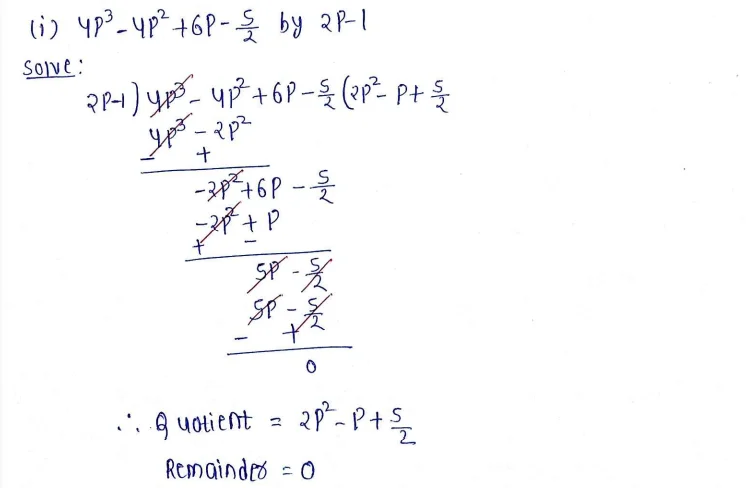 (i) 4P³ - 4P² + 6P - 5/2 by 2P-1
Solve:
2P-1) 4P³ - 4P² + 6P - 5/2 (2P² - P + 5/2
4P³ - 2P²
- +
-2P² + 6P - 5/2
-2P² + P
+ -
5P - 5/2
5P - 5/2
- +
0
∴ Quotient = 2P² - P + 5/2
Remainder = 0